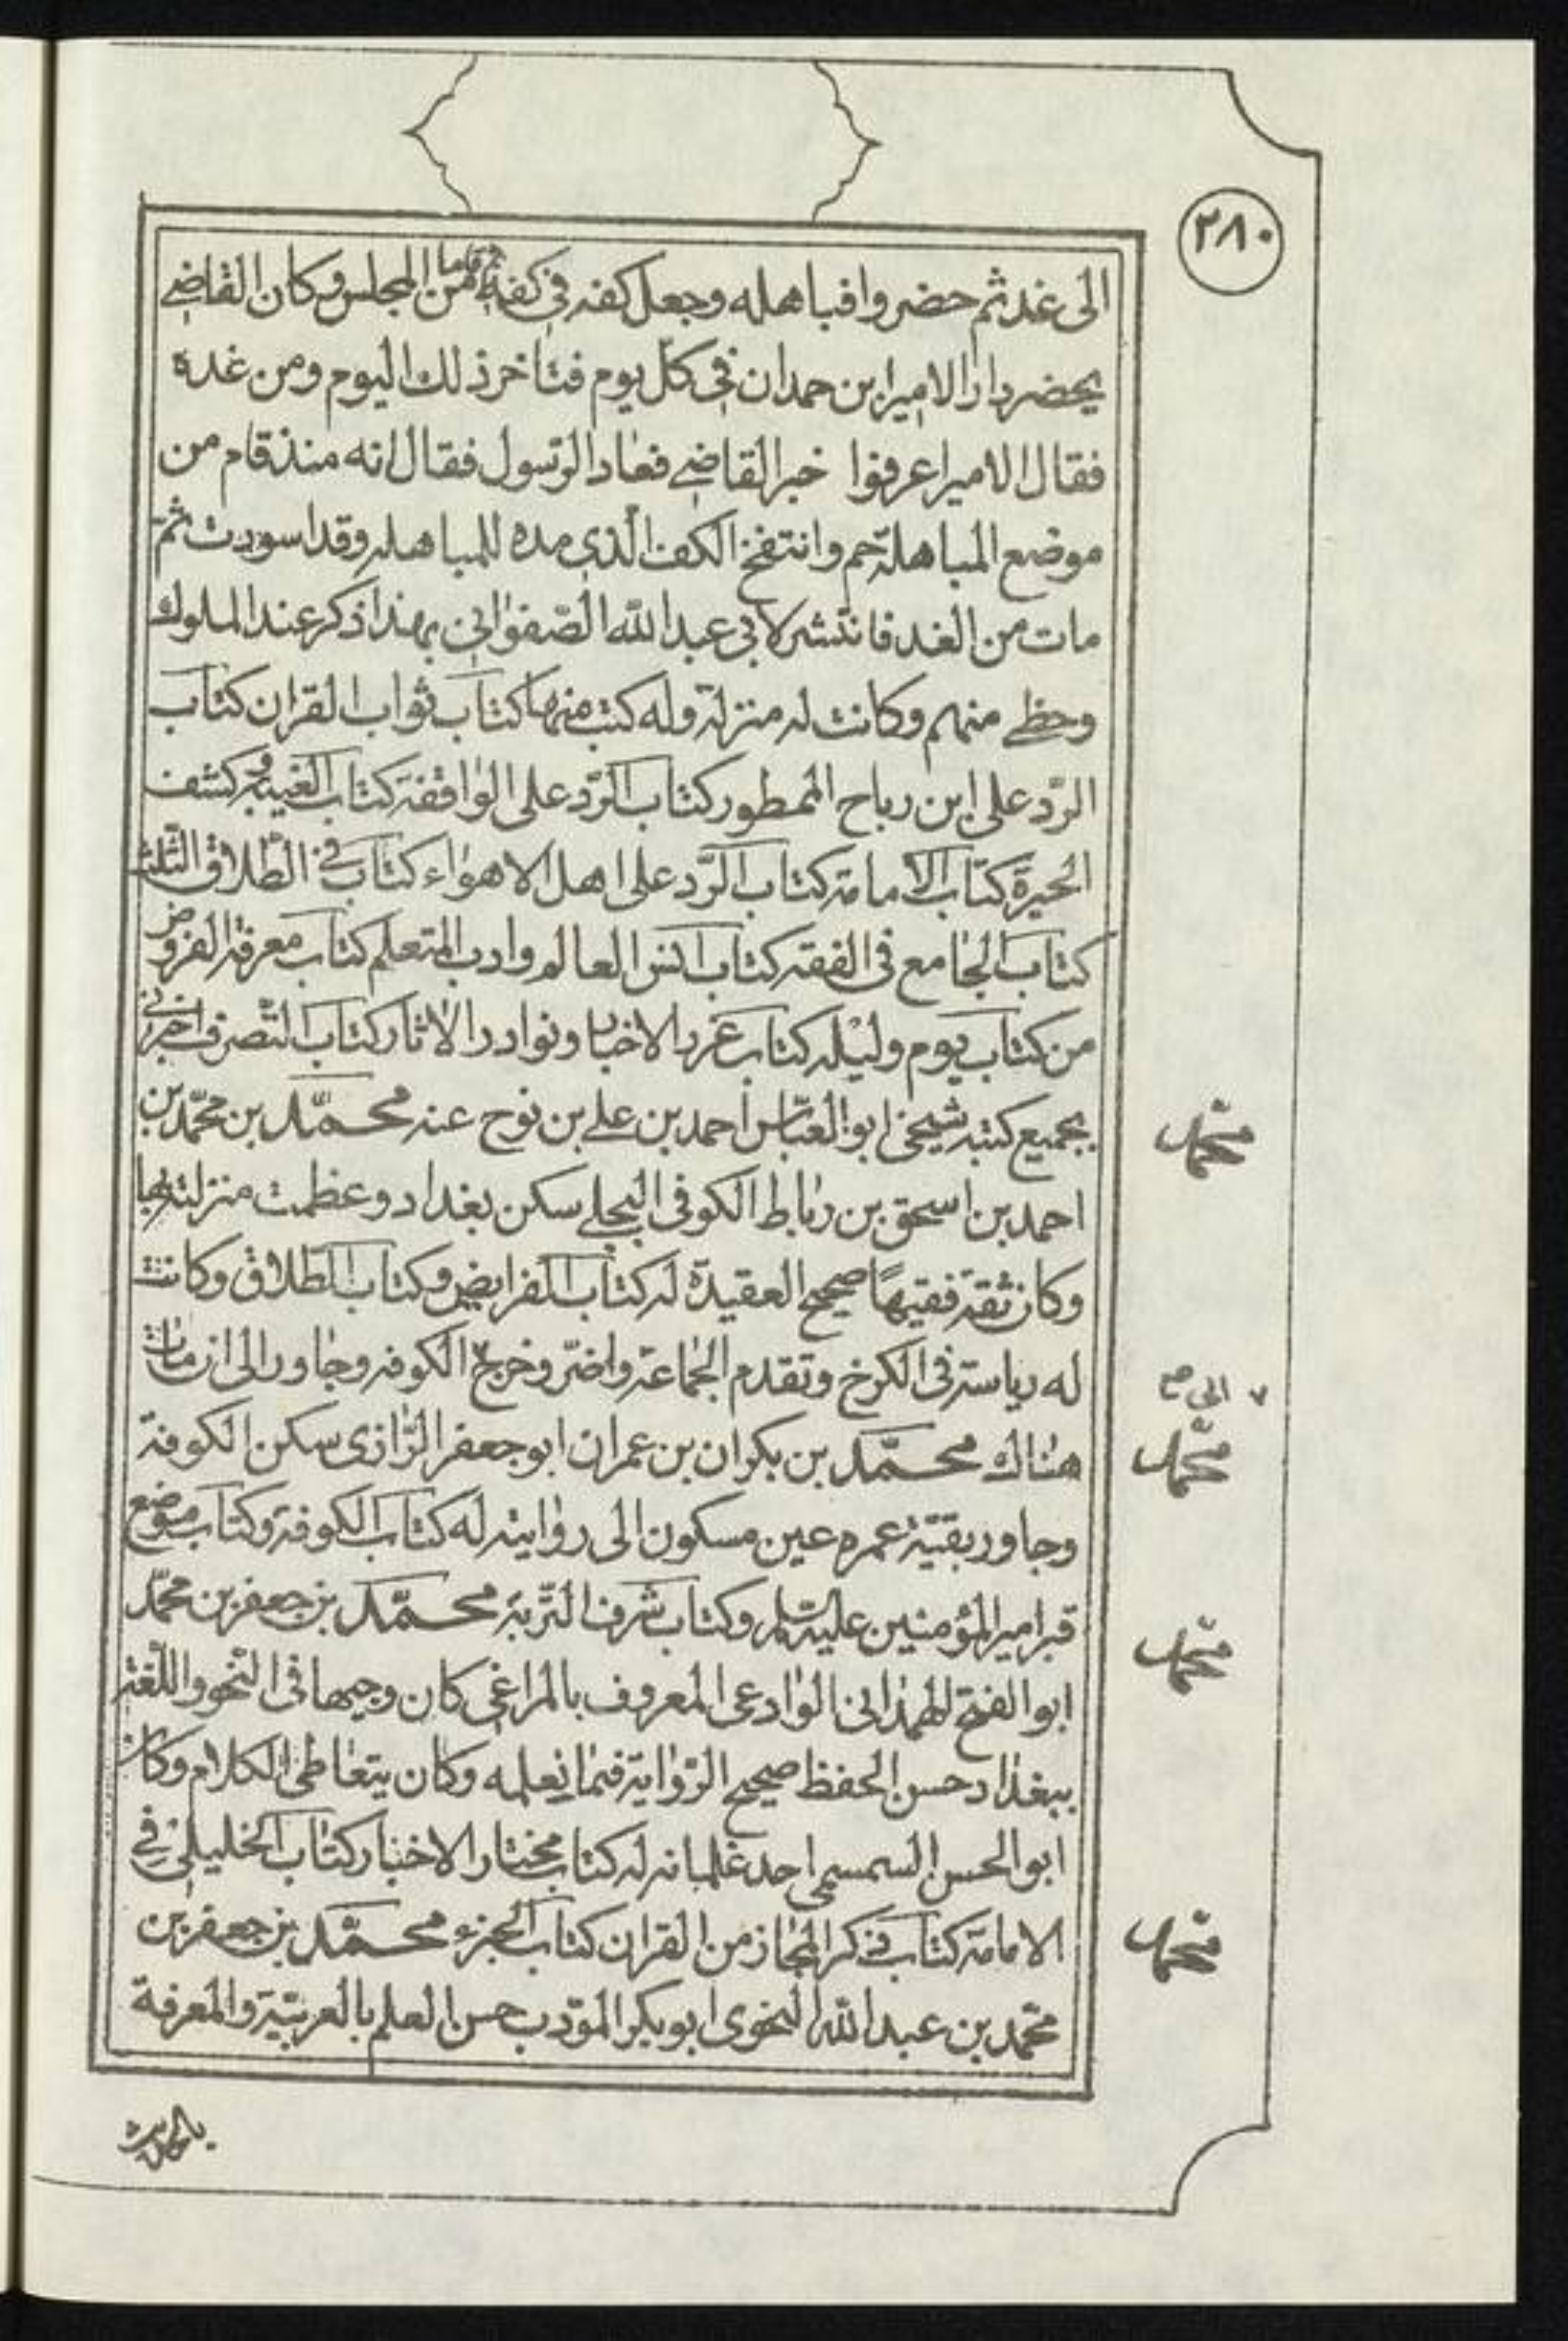 ٢٨٠
الى غد ثم حضروا فباهله وجعل كفه في كفه ثم قاما من المجلس وكان القاضي
يحضر دار الامير ابن حمدان في كل يوم فتاخر ذلك اليوم ومن غده
فقال الامير اعرفوا خبر القاضي فعاد الرّسول فقال انه منذ قام من
موضع المباهلة حم وانتفخ الكف الّذي مده للمباهله وقد اسودت ثمّ
مات من الغد فانتشر لابي عبد الله الصّفواني بهذا ذكر عند الملوك
وحظي منهم وكانت له منزلة وله كتب منها كتاب ثواب القران كتاب
الرّد على ابن رباح الممطور كتاب الرّد على الواقفة كتاب الغيبة وكشف
الحيرة كتاب الامامة كتاب الرّد على اهل الاهواء كتاب في الطّلاق الثّلث
كتاب الجامع في الفقه كتاب انس العالم وادب المتعلم كتاب معرفة الفروض
من كتاب يوم وليله كتاب غرر الاخبار ونوادر الاثار كتاب التّصرف اخبرني
بجميع كتبه شيخي ابو العبّاس احمد بن علي بن نوح عنه محمّد بن محمّد بن
محمّد
احمد بن اسحق بن رباط الكوفي البجلي سكن بغداد وعظمت منزلته بها
وكان ثقة فقيهًا صحيح العقيدة له كتاب الفرايض وكتاب الطّلاق وكانت
له رياسة في الكرخ وتقدم الجماعة واضرّ وخرج ٧ الكوفه وجاور الى ان مات
٧ الى صح
هناك محمّد بن بكران بن عمران ابو جعفر الرّازي سكن الكوفة
محمّد
وجاور بقيّة عمره عين مسكون الى روايته له كتاب الكوفة وكتاب موضع
قبر امير المؤمنين عليه السلم وكتاب شرف التّربة محمّد بن جعفر بن محمّد
محمّد
ابو الفتح الهمداني الوادعي المعروف بالمراغي كان وجيها في النّحو واللّغة
ببغداد حسن الحفظ صحيح الرّواية فيما يعلمه وكان يتعاطى الكلام وكان
ابو الحسن السمسمي احد غلمانه له كتاب مختار الاخبار كتاب الخليلي في
الامامة كتاب ذكر المجاز من القران كتاب الجزء محمّد بن جعفر بن
محمّد
محمّد بن عبد الله النحوي ابو بكر المؤدب حسن العلم بالعربيّة والمعرفة